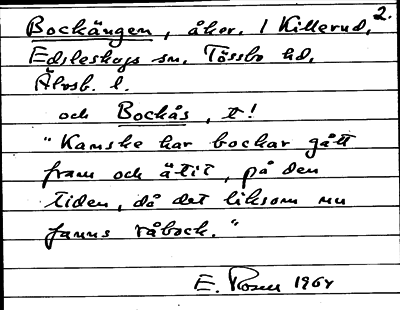 2.
Bockängen, åker. 1 Killerud,
Edsleskogs sn. Tössbo hd,
Älvsb. l.
och Bockås, t!
"Kanske har bockar gått
fram och ätit, på den
tiden, då det liksom nu
fanns råbock."
E. Rosen 1964